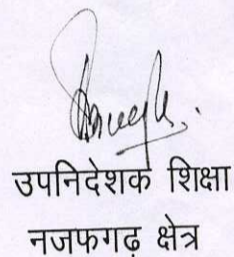 उपनिदेशक शिक्षा
नजफगढ़ क्षेत्र